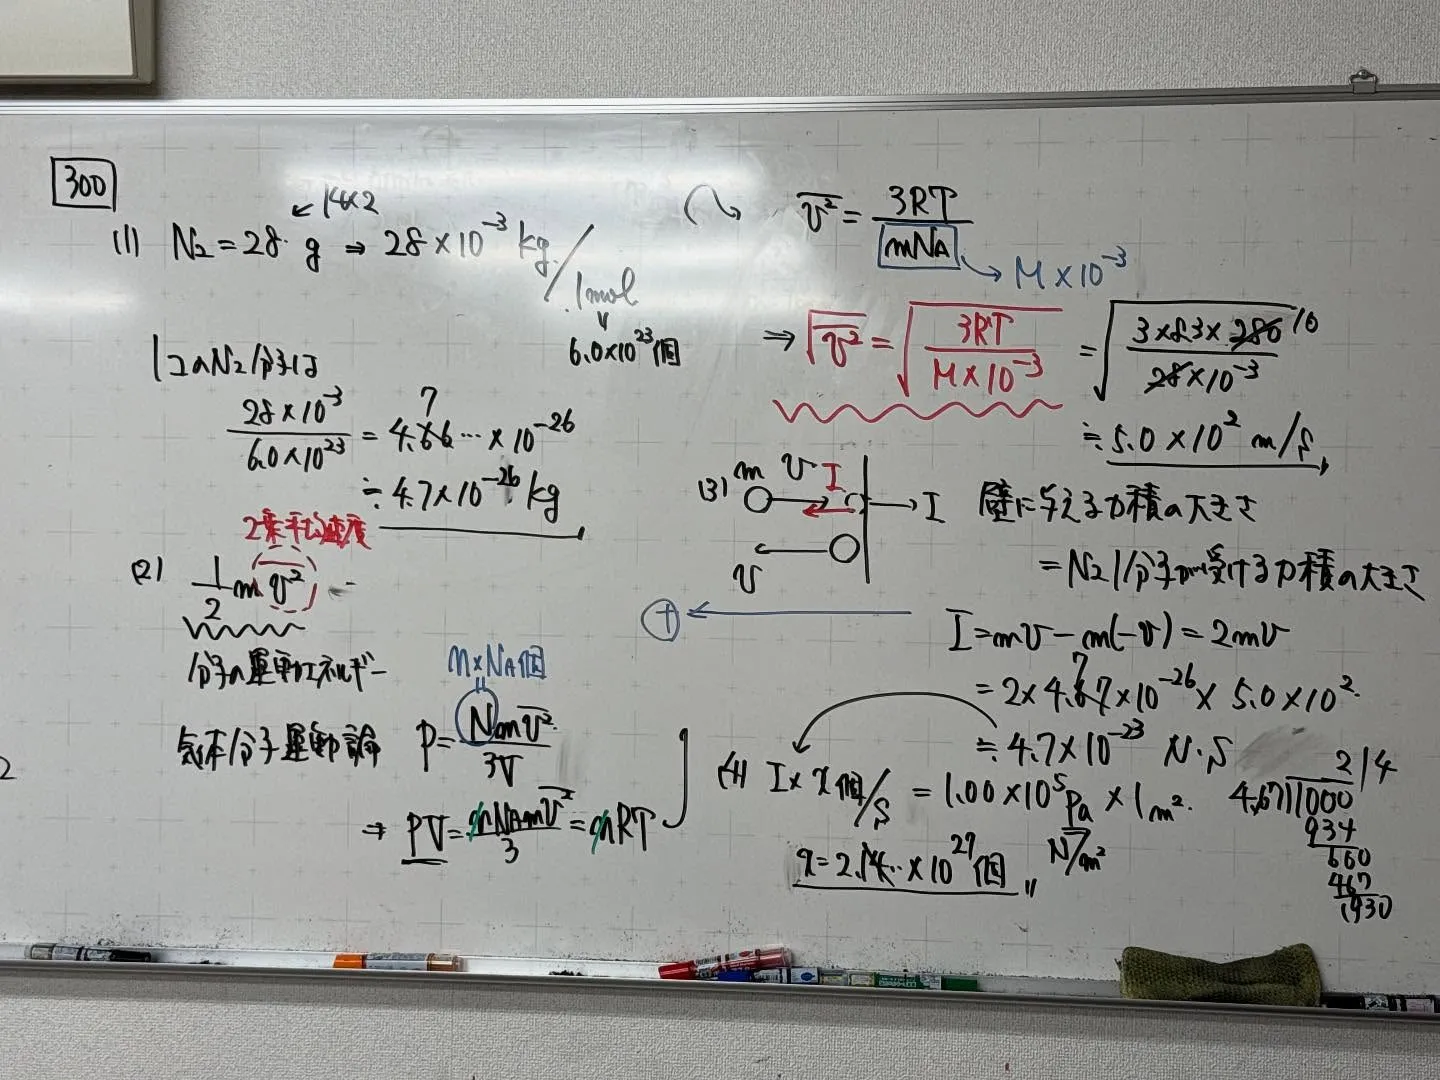 300
14×2
(1) N2 = 28 g ⇒ 28×10^-3 kg/1mol
6.0×10^23個
1コのN2分子は
28×10^-3 / 6.0×10^23 = 4.66… × 10^-26
7
≒ 4.7×10^-26 kg
2乗平均速度
(2) 1/2 m v̅²
分子の運動エネルギー
n×NA個
気体分子運動論 P = Nmv̅² / 3V
⇒ PV = nNAmv̅² / 3 = nRT
v̅² = 3RT / mNA
M×10^-3
⇒ √v̅² = √(3RT / M×10^-3) = √(3×8.3×280 / 28×10^-3)
10
≒ 5.0×10^2 m/s
(3) m v I
→ I 壁に与える力積の大きさ
v
= N2 1分子が受ける力積の大きさ
+
I = mv − m(−v) = 2mv
7
= 2×4.67×10^-26 × 5.0×10^2
≒ 4.7×10^-23 N·s
(4) I × x個/s = 1.00×10^5 Pa × 1m²
N/m²
x = 2.14.. ×10^27個 〃
214
4.67 1000
934
660
467
1930
2